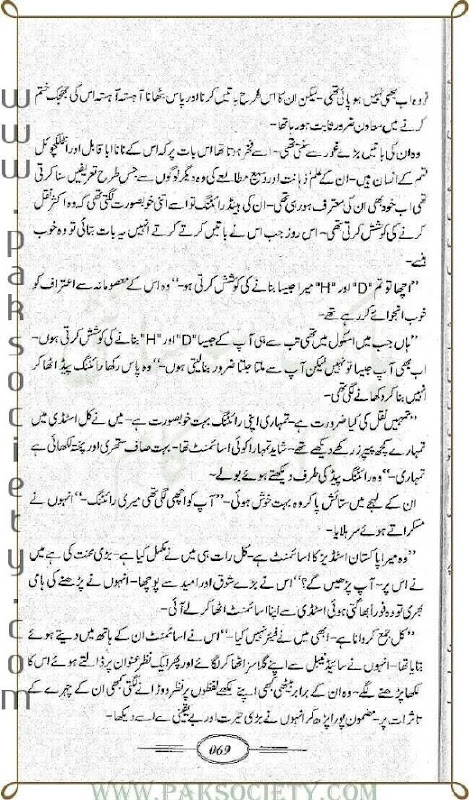 وہ اب بھی نہیں ہو پائی تھی۔ لیکن ان کا اس طرح باتیں کرنا اور پاس بٹھانا آہستہ آہستہ اس کی جھجک ختم
کرنے میں معاون ضرور ثابت ہو رہا تھا۔
وہ ان کی باتیں بڑے غور سے سنتی تھی۔ اسے فخر ہوتا تھا اس بات پر کہ اس کے نانا ابا قابل اور انٹلکچوئل
قسم کے انسان ہیں۔ ان کے علم، ذہانت اور وسیع مطالعے کی وہ دیگر لوگوں سے جس طرح تعریفیں سنا کرتی
تھی اب خود بھی ان کی معترف ہو رہی تھی۔ ان کی ہینڈ رائٹنگ تو اسے اتنی خوبصورت لگتی تھی کہ وہ اکثر نقل
کرنے کی کوشش کرتی تھی۔ اس روز جب اس نے باتیں کرتے کرتے انہیں یہ بات بتائی تو وہ خوب
ہنسے۔
"اچھا تو تم "D" اور "H" میرا جیسا بنانے کی کوشش کرتی ہو۔" وہ اس کے معصومانہ سے اعتراف کو
خوب انجوائے کر رہے تھے۔
"ہاں جب میں اسکول میں تھی تب سے ہی آپ کے جیسا "D" اور "H" بنانے کی کوشش کرتی ہوں۔
اب بھی آپ جیسا تو نہیں لیکن آپ سے ملتا جلتا ضرور بنا لیتی ہوں۔" وہ پاس رکھا رائٹنگ پیڈ اٹھا کر
انہیں بنا کر دکھانے لگی تھی۔
"تمہیں نقل کی کیا ضرورت ہے۔ تمہاری اپنی رائٹنگ بہت خوبصورت ہے۔ میں نے کل اسٹڈی میں
تمہارے کچھ پیپرز رکھے دیکھے تھے۔ شاید تمہارا کوئی اسائنمنٹ تھا۔ بہت صاف ستھری اور پختہ لکھائی ہے
تمہاری۔" وہ رائٹنگ پیڈ کی طرف دیکھتے ہوئے بولے۔
ان کے لہجے میں ستائش پا کر وہ بہت خوش ہوئی۔ "آپ کو اچھی لگی تھی میری رائٹنگ۔" انہوں نے
مسکراتے ہوئے سر ہلایا۔
"وہ میرا پاکستان اسٹڈیز کا اسائنمنٹ ہے۔ کل رات ہی میں نے مکمل کیا ہے۔ بڑی محنت کی ہے میں
نے اس پر۔ آپ پڑھیں گے؟" اس نے بڑے شوق اور امید سے پوچھا۔ انہوں نے پڑھنے کی ہامی
بھری تو وہ فوراً بھاگتی ہوئی اسٹڈی سے اپنا اسائنمنٹ اٹھا کر لے آئی۔
"کل جمع کروانا ہے۔ ابھی میں نے فیئر نہیں کیا۔" اس نے اسائنمنٹ ان کے ہاتھ میں دیتے ہوئے
بتایا تھا۔ انہوں نے سائیڈ ٹیبل سے اپنے گلاسز اٹھا کر لگائے اور پھر ایک نظر عنوان پر ڈالتے ہوئے اس کا
لکھا پڑھنے لگے۔ وہ ان کے برابر بیٹھی کبھی اپنے لکھے لفظوں پر نظر دوڑانے لگتی کبھی ان کے چہرے کے
تاثرات پر۔ مضمون پورا پڑھ کر انہوں نے بڑی حیرت اور بے یقینی سے اسے دیکھا۔
069
www.paksociety.com
WWW.PAKSOCIETY.COM